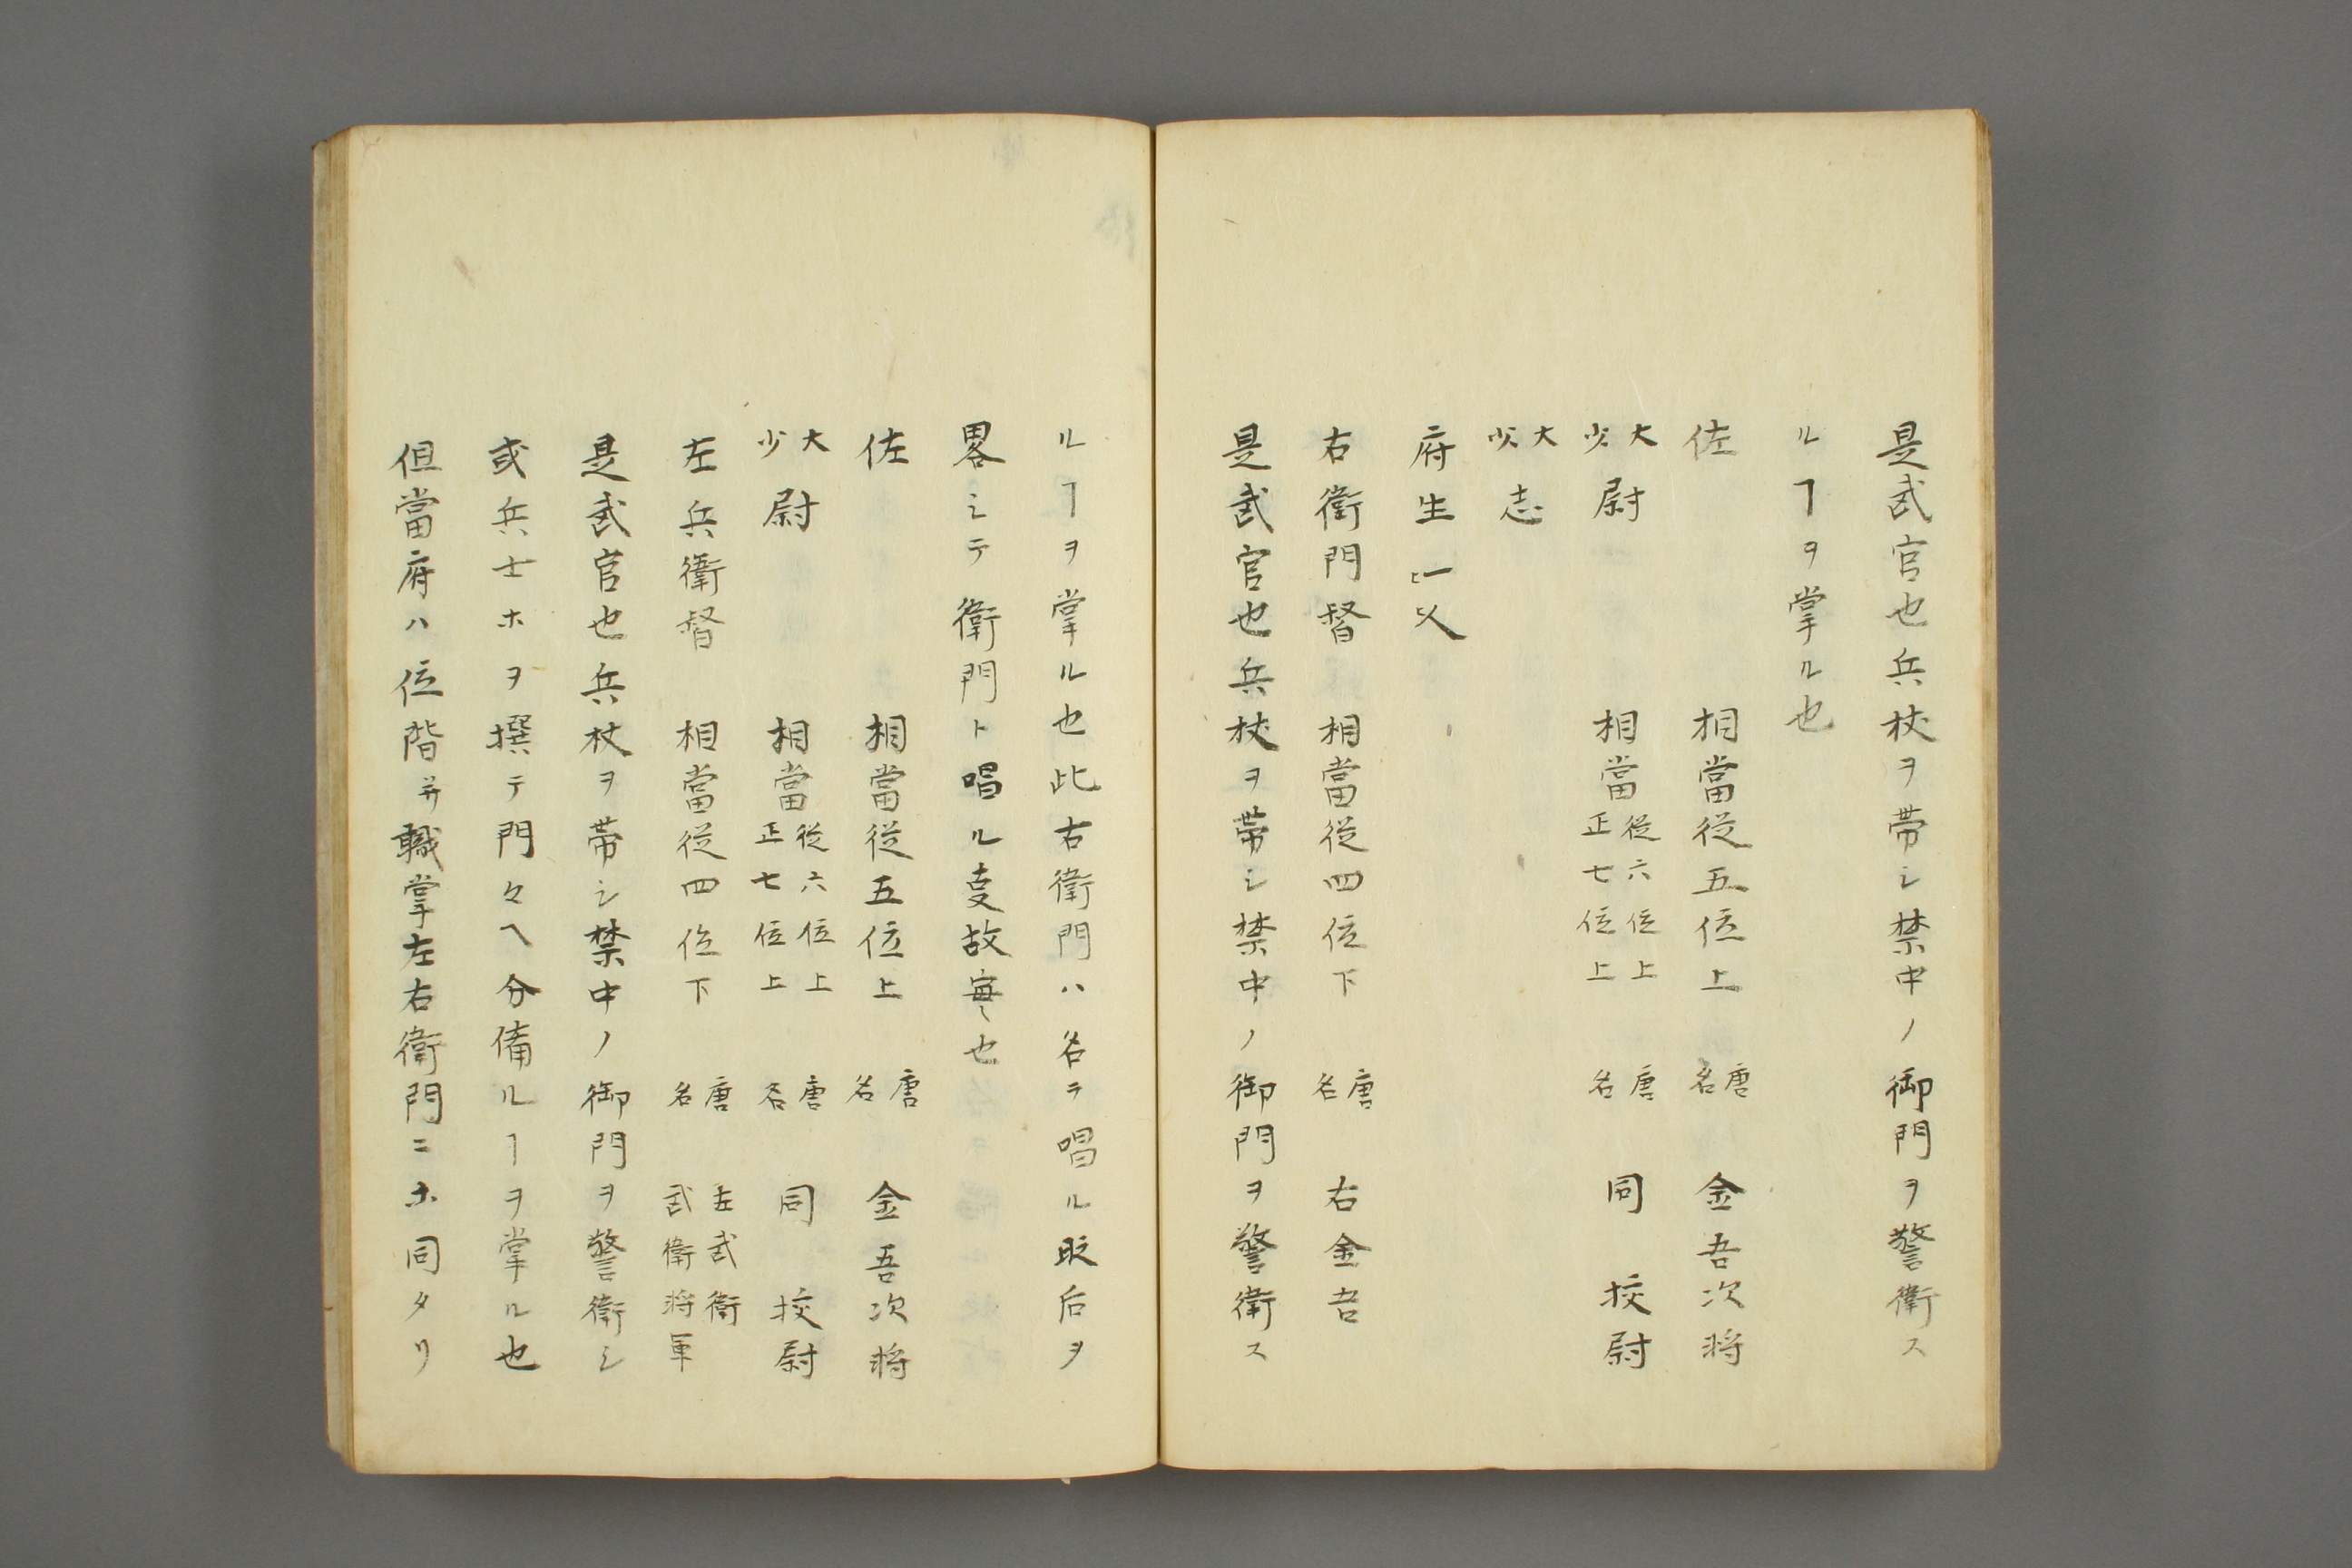 是武官也兵杖ヲ帯シ禁中ノ御門ヲ警衛ス
ルヿヲ掌ル也
佐 相當從五位上 唐名 金吾次将
大少尉 相當從六位上正七位上 唐名 同 挍尉
大少志
府生
右衛門督 相當從四位下 唐名 右金吾
是武官也兵杖ヲ帯シ禁中ノ御門ヲ警衛ス
ルヿヲ掌ル也此右衛門ハ名ヲ唱ル时右ヲ
畧シテ衛門ト唱ル叓故實也
佐 相當從五位上 唐名 金吾次将
大少尉 相當從六位上正七位上 唐名 同 挍尉
左兵衛督 相當從四位下 唐名 左武衛武衛将軍
是武官也兵杖ヲ帯シ禁中ノ御門ヲ警衛シ
或兵士ホヲ撰テ門々ヘ分備ルヿヲ掌ル也
但當府ハ位階并職掌左右衛門ニホ同タリ